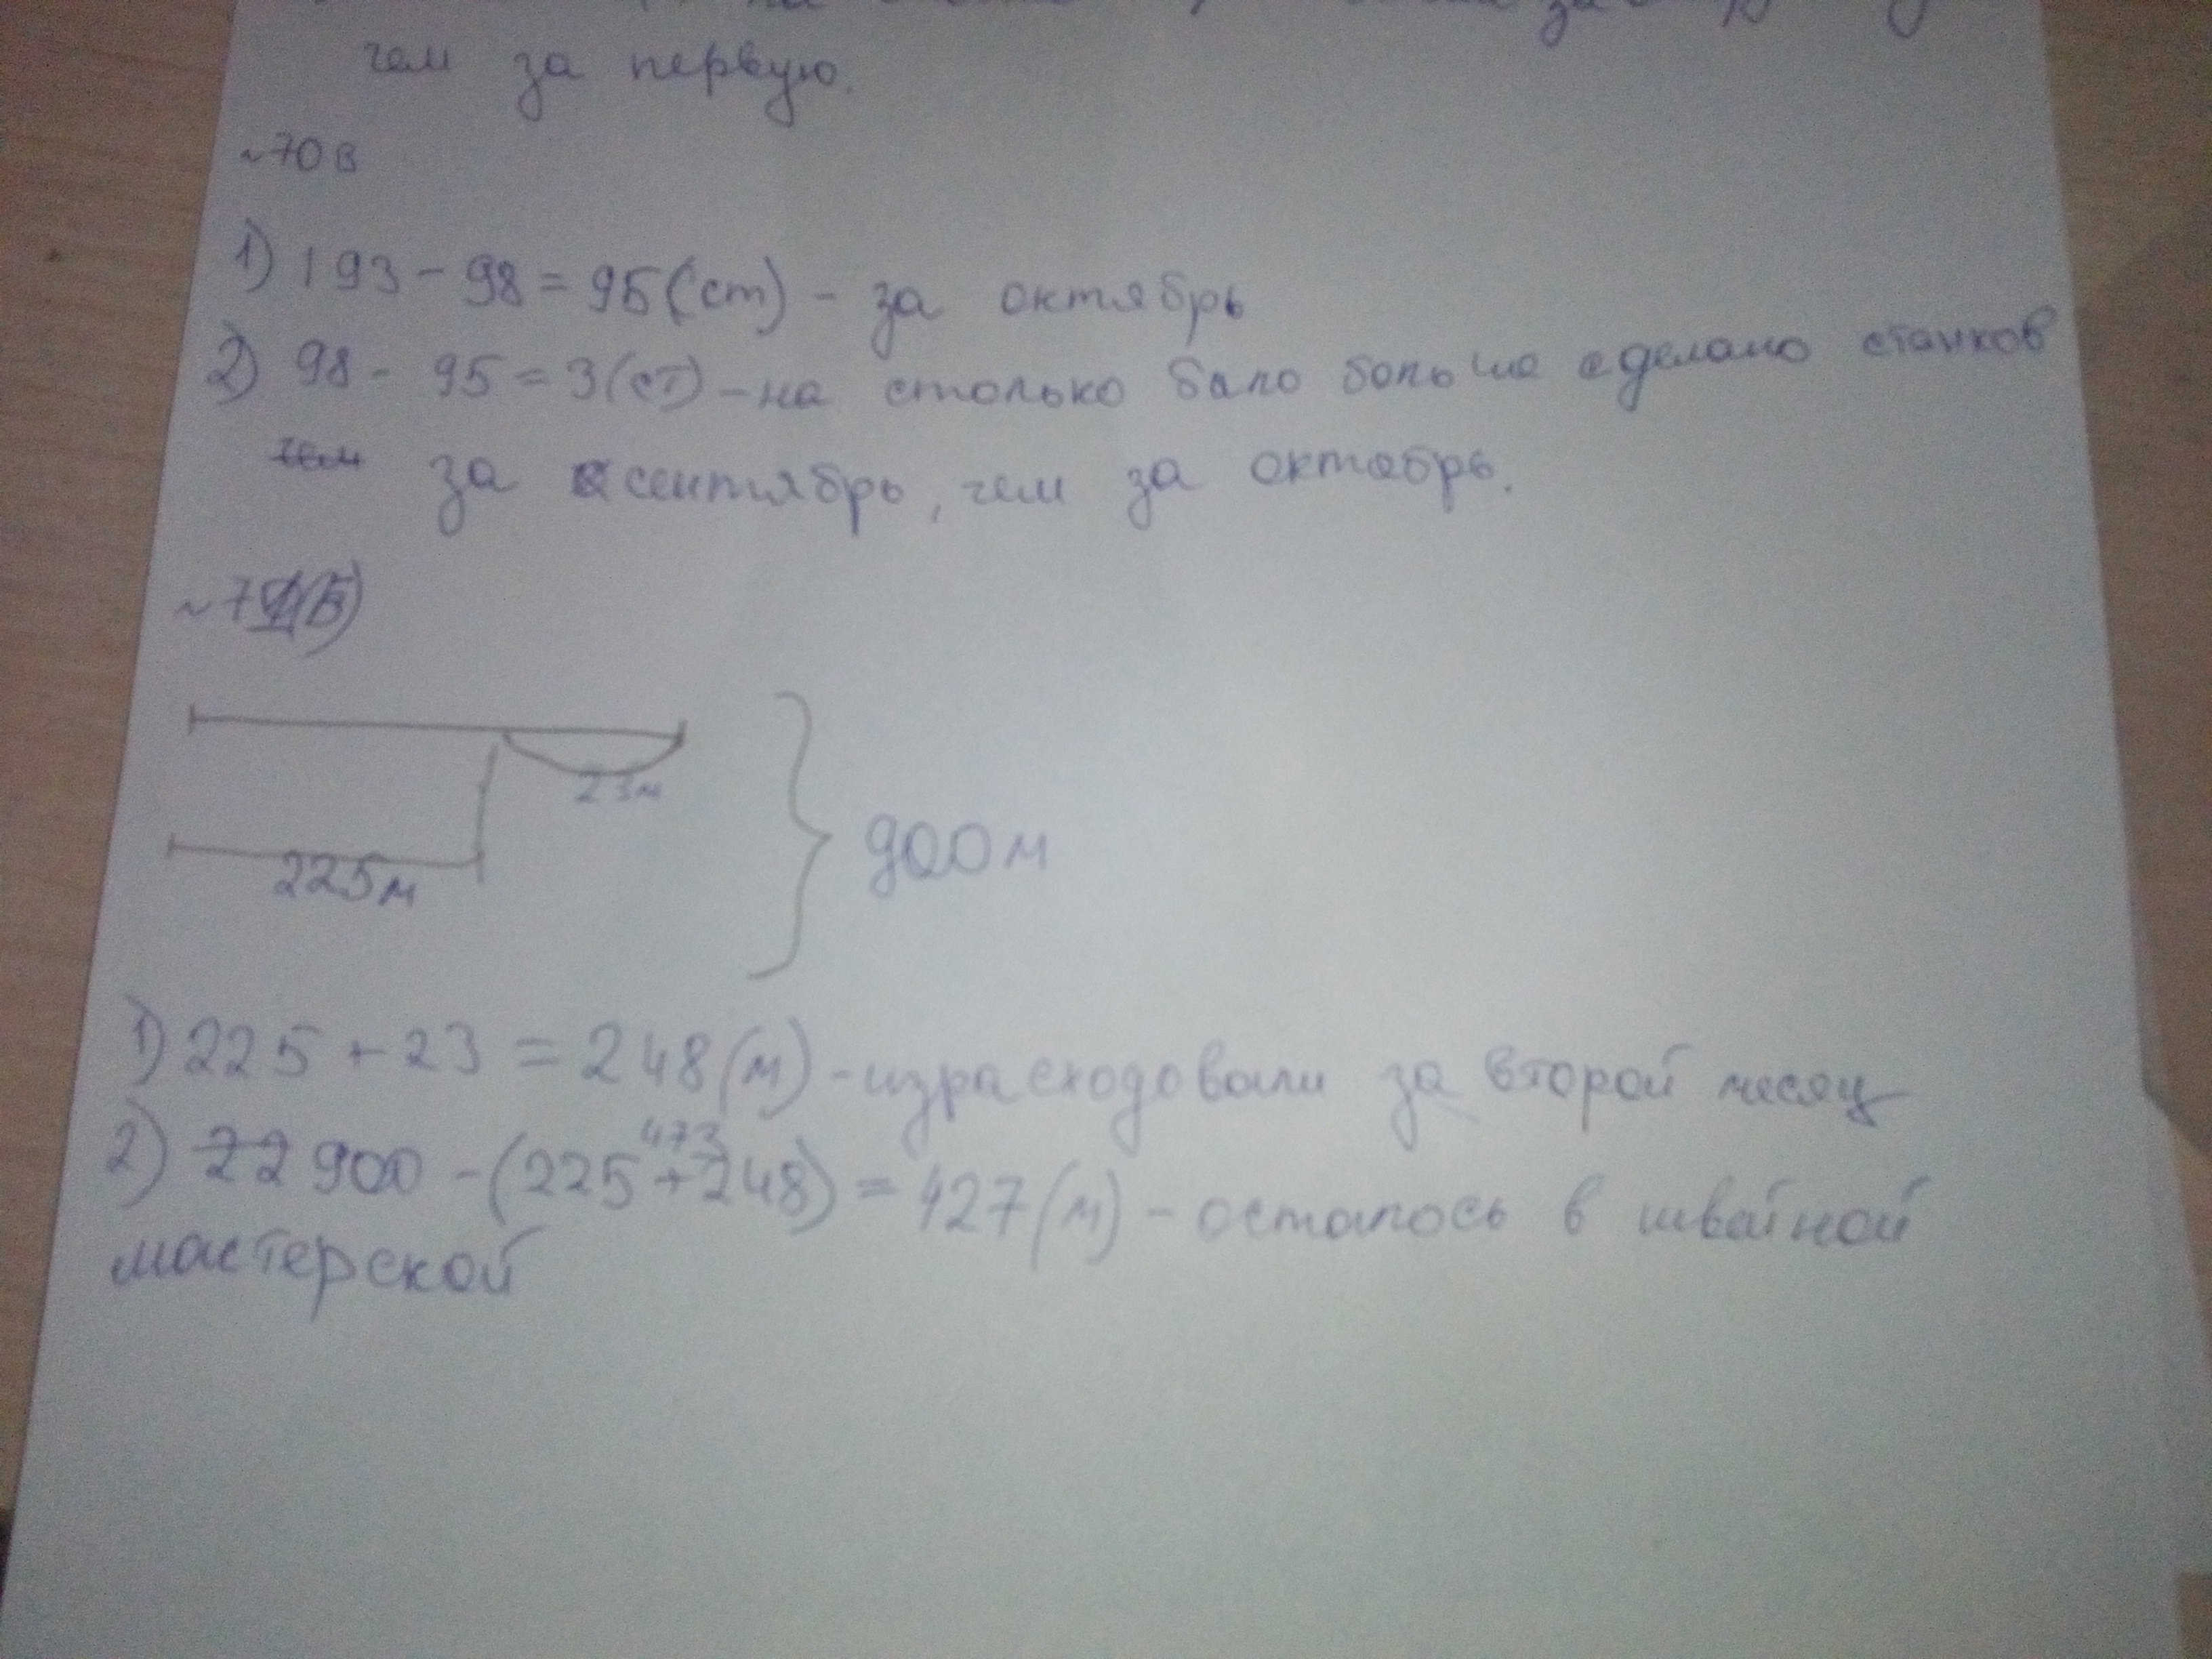 чем за первую.
~70в
1) 193 - 98 = 95(ст) - за октябрь
2) 98 - 95 = 3(ст) - на столько было больше сделано станков
чем за сентябрь, чем за октябрь.
23м
225м
900м
1) 225 + 23 = 248(м) - израсходовали за второй месяц
473
2) 22 900 - (225 + 248) = 427(м) - осталось в швейной
мастерской